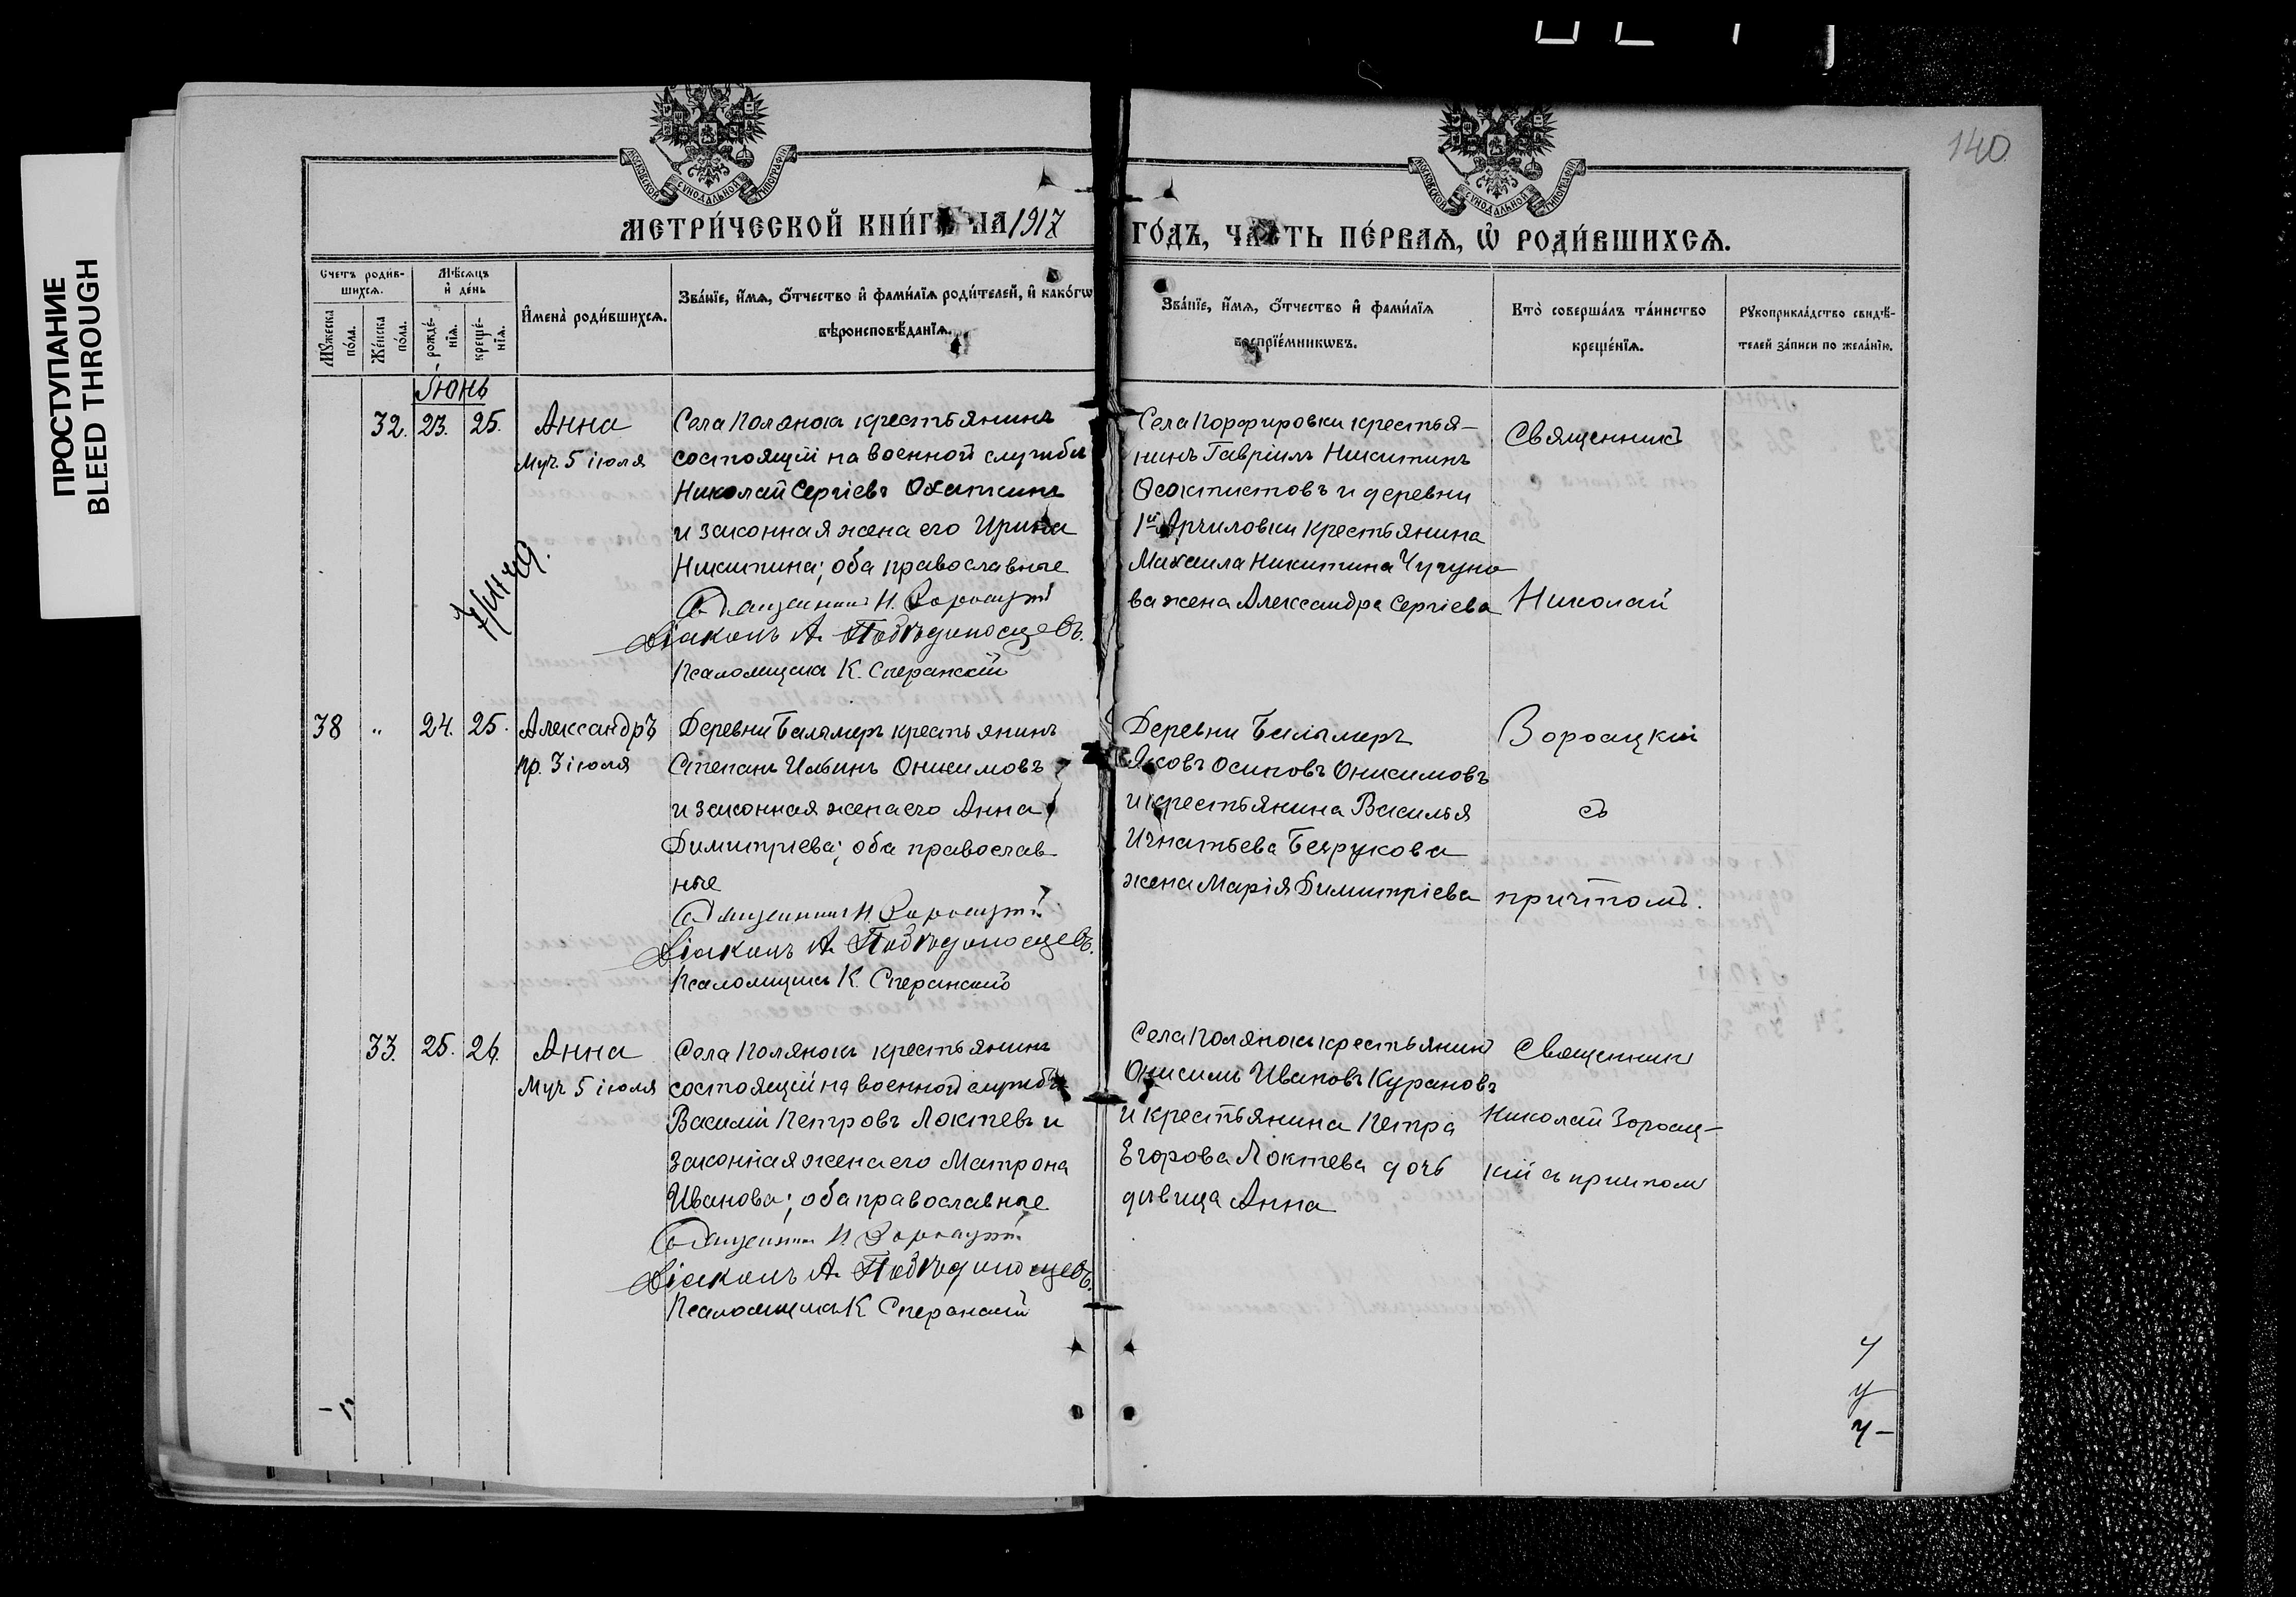 ПРОСТУПАНИЕ
BLEED THROUGH
140
МОСКОВСКОЙ СѴНОДАЛЬНОЙ ТИПОГРАФІИ
МОСКОВСКОЙ СѴНОДАЛЬНОЙ ТИПОГРАФІИ
МЕТРИ́ЧЕСКОЙ КНИ́ГИ НА 1917
ГО́ДЪ, ЧА́СТЬ ПЕ́РВАѦ, Ѡ҆ РОДИ́ВШИХСѦ.
Счетъ роди́вшихсѧ.
Мꙋ́жеска по́ла.
Же́нска по́ла.
Мѣ́сѧцъ и҆ де́нь
рожде́нїѧ.
креще́нїѧ.
И҆мена̀ роди́вшихсѧ.
Зва́нїе, и҆́мѧ, ѻ҆́тчество и҆ фами́лїѧ роди́телей, и҆ како́гѡ
вѣроисповѣ́данїѧ.
Зва́нїе, и҆́мѧ, ѻ҆́тчество и҆ фами́лїѧ
воспрїе́мникѡвъ.
Кто̀ соверша́лъ та́инство
креще́нїѧ.
Рꙋкоприкла́дство свидѣ́-
телей за́писи по жела́нїю.
Іюнь
32. 23. 25.
Анна
Муч. 5 іюля
Села Полянокъ крестьянинъ
состоящій на военной службѣ
Николай Сергіевъ Охаткинъ
и законная жена его Ирина
Никитина; оба православные
Священникъ Н. Зороацкій
Діаконъ А. Побѣдоносцевъ.
Псаломщикъ К. Сперанскій
Села Порфировки крестья-
нинъ Гавріилъ Никитинъ
Ѳеоктистовъ и деревни
1й Арчиловки крестьянина
Михаила Никитина Чугуно
ва жена Александра Сергіева
Священникъ
Николай
38 " 24. 25.
Александръ
пр. 3 іюля
Деревни Балымеръ крестьянинъ
Степанъ Ильинъ Онисимовъ
и законная жена его Анна
Димитріева; оба православ
ные
Священникъ Н. Зороацкій
Діаконъ А. Побѣдоносцевъ.
Псаломщикъ К. Сперанскій
Деревни Балымеръ
Яковъ Осиповъ Онисимовъ
и крестьянина Василья
Игнатьева Безрукова
жена Марія Димитріева
Зороацкій
съ
причтомъ.
33. 25. 26.
Анна
Муч 5 іюля
Села Полянокъ крестьянинъ
состоящій на военной службѣ
Василій Петровъ Локтевъ и
законная жена его Матрона
Иванова; оба православные
Священникъ Н. Зороацкій
Діаконъ А. Побѣдоносцевъ.
Псаломщикъ К Сперанскій
Села Полянокъ крестьянинъ
Онисимъ Ивановъ Курановъ
и крестьянина Петра
Егорова Локтева дочь
дѣвица Анна
Священникъ
Николай Зороац-
кій съ причтом